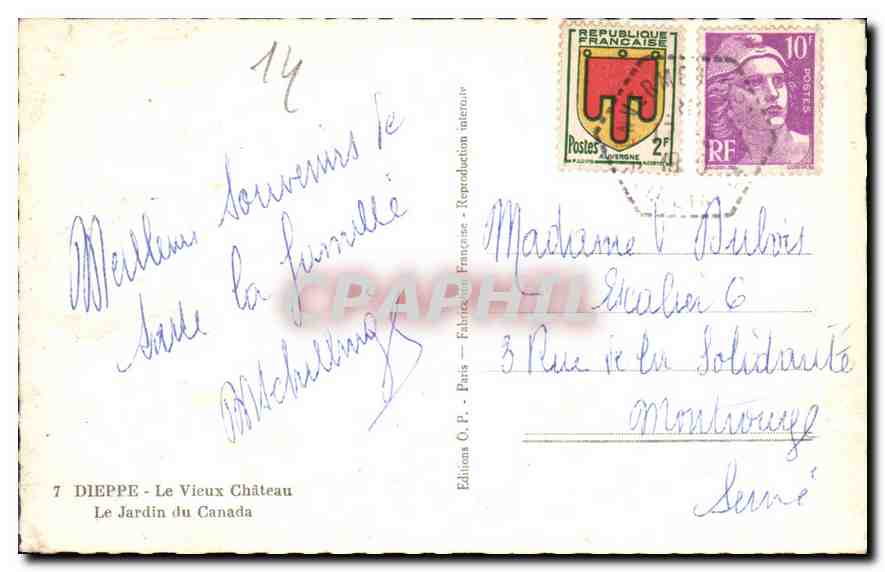 14
Meilleurs Souvenirs de
toute la famille
Schilling
7 DIEPPE - Le Vieux Château
Le Jardin du Canada
Editions O. P. - Paris — Fabrication Française - Reproduction interdite
REPUBLIQUE
FRANÇAISE
Postes 2F
AUVERGNE
10F
POSTES
RF
CPAPHIL
Madame Dubois
Escalier 6
3 Rue de la Solidarité
Montrouge
Seine